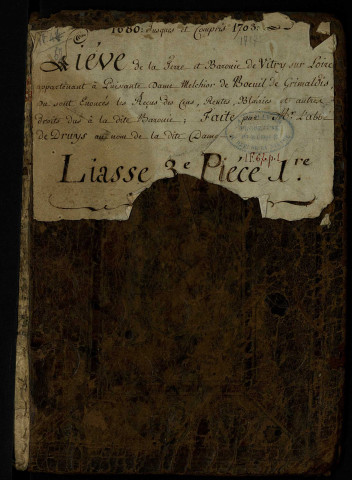 1680: jusques et Compris 1703:
Liéve de la Terre et Baronie de Vitry sur Loire
appartenant à Puissante Dame Melchior de Boeuil de Grimaldis
ou sont Enoncés les Reçus des Cens, Rentes, Blairies et autres
droits dus à la dite Baronie; Faite par Mr. l'abbé
de Druys au nom de la dite Dame
Liasse 3e Piéce 1.re